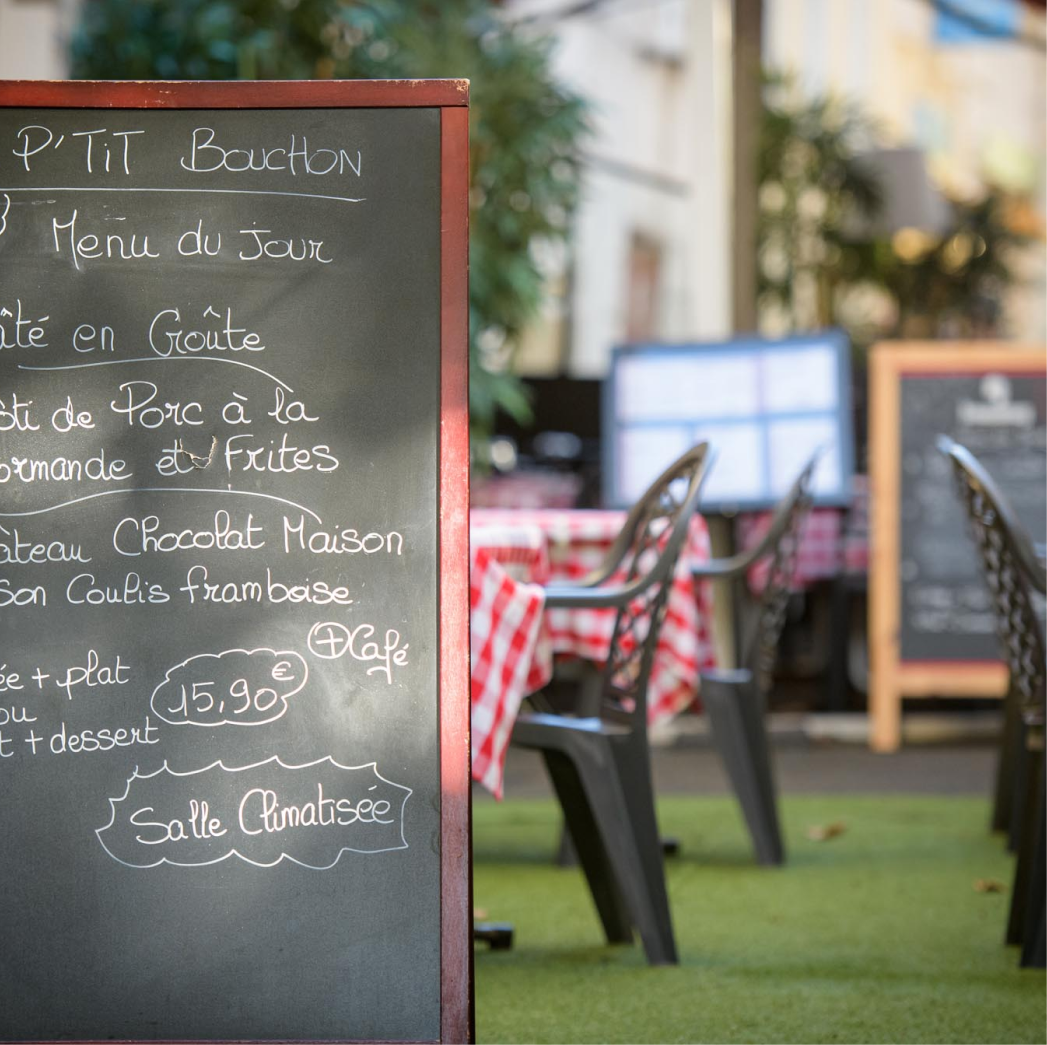 P'TiT BOUCHON
Menu du Jour
âté en Croûte
ôti de Porc à la
ormande et Frites
âteau Chocolat Maison
Son Coulis framboise.
+ Café
ée + plat
15,90€
ou
t + dessert
Salle Climatisée